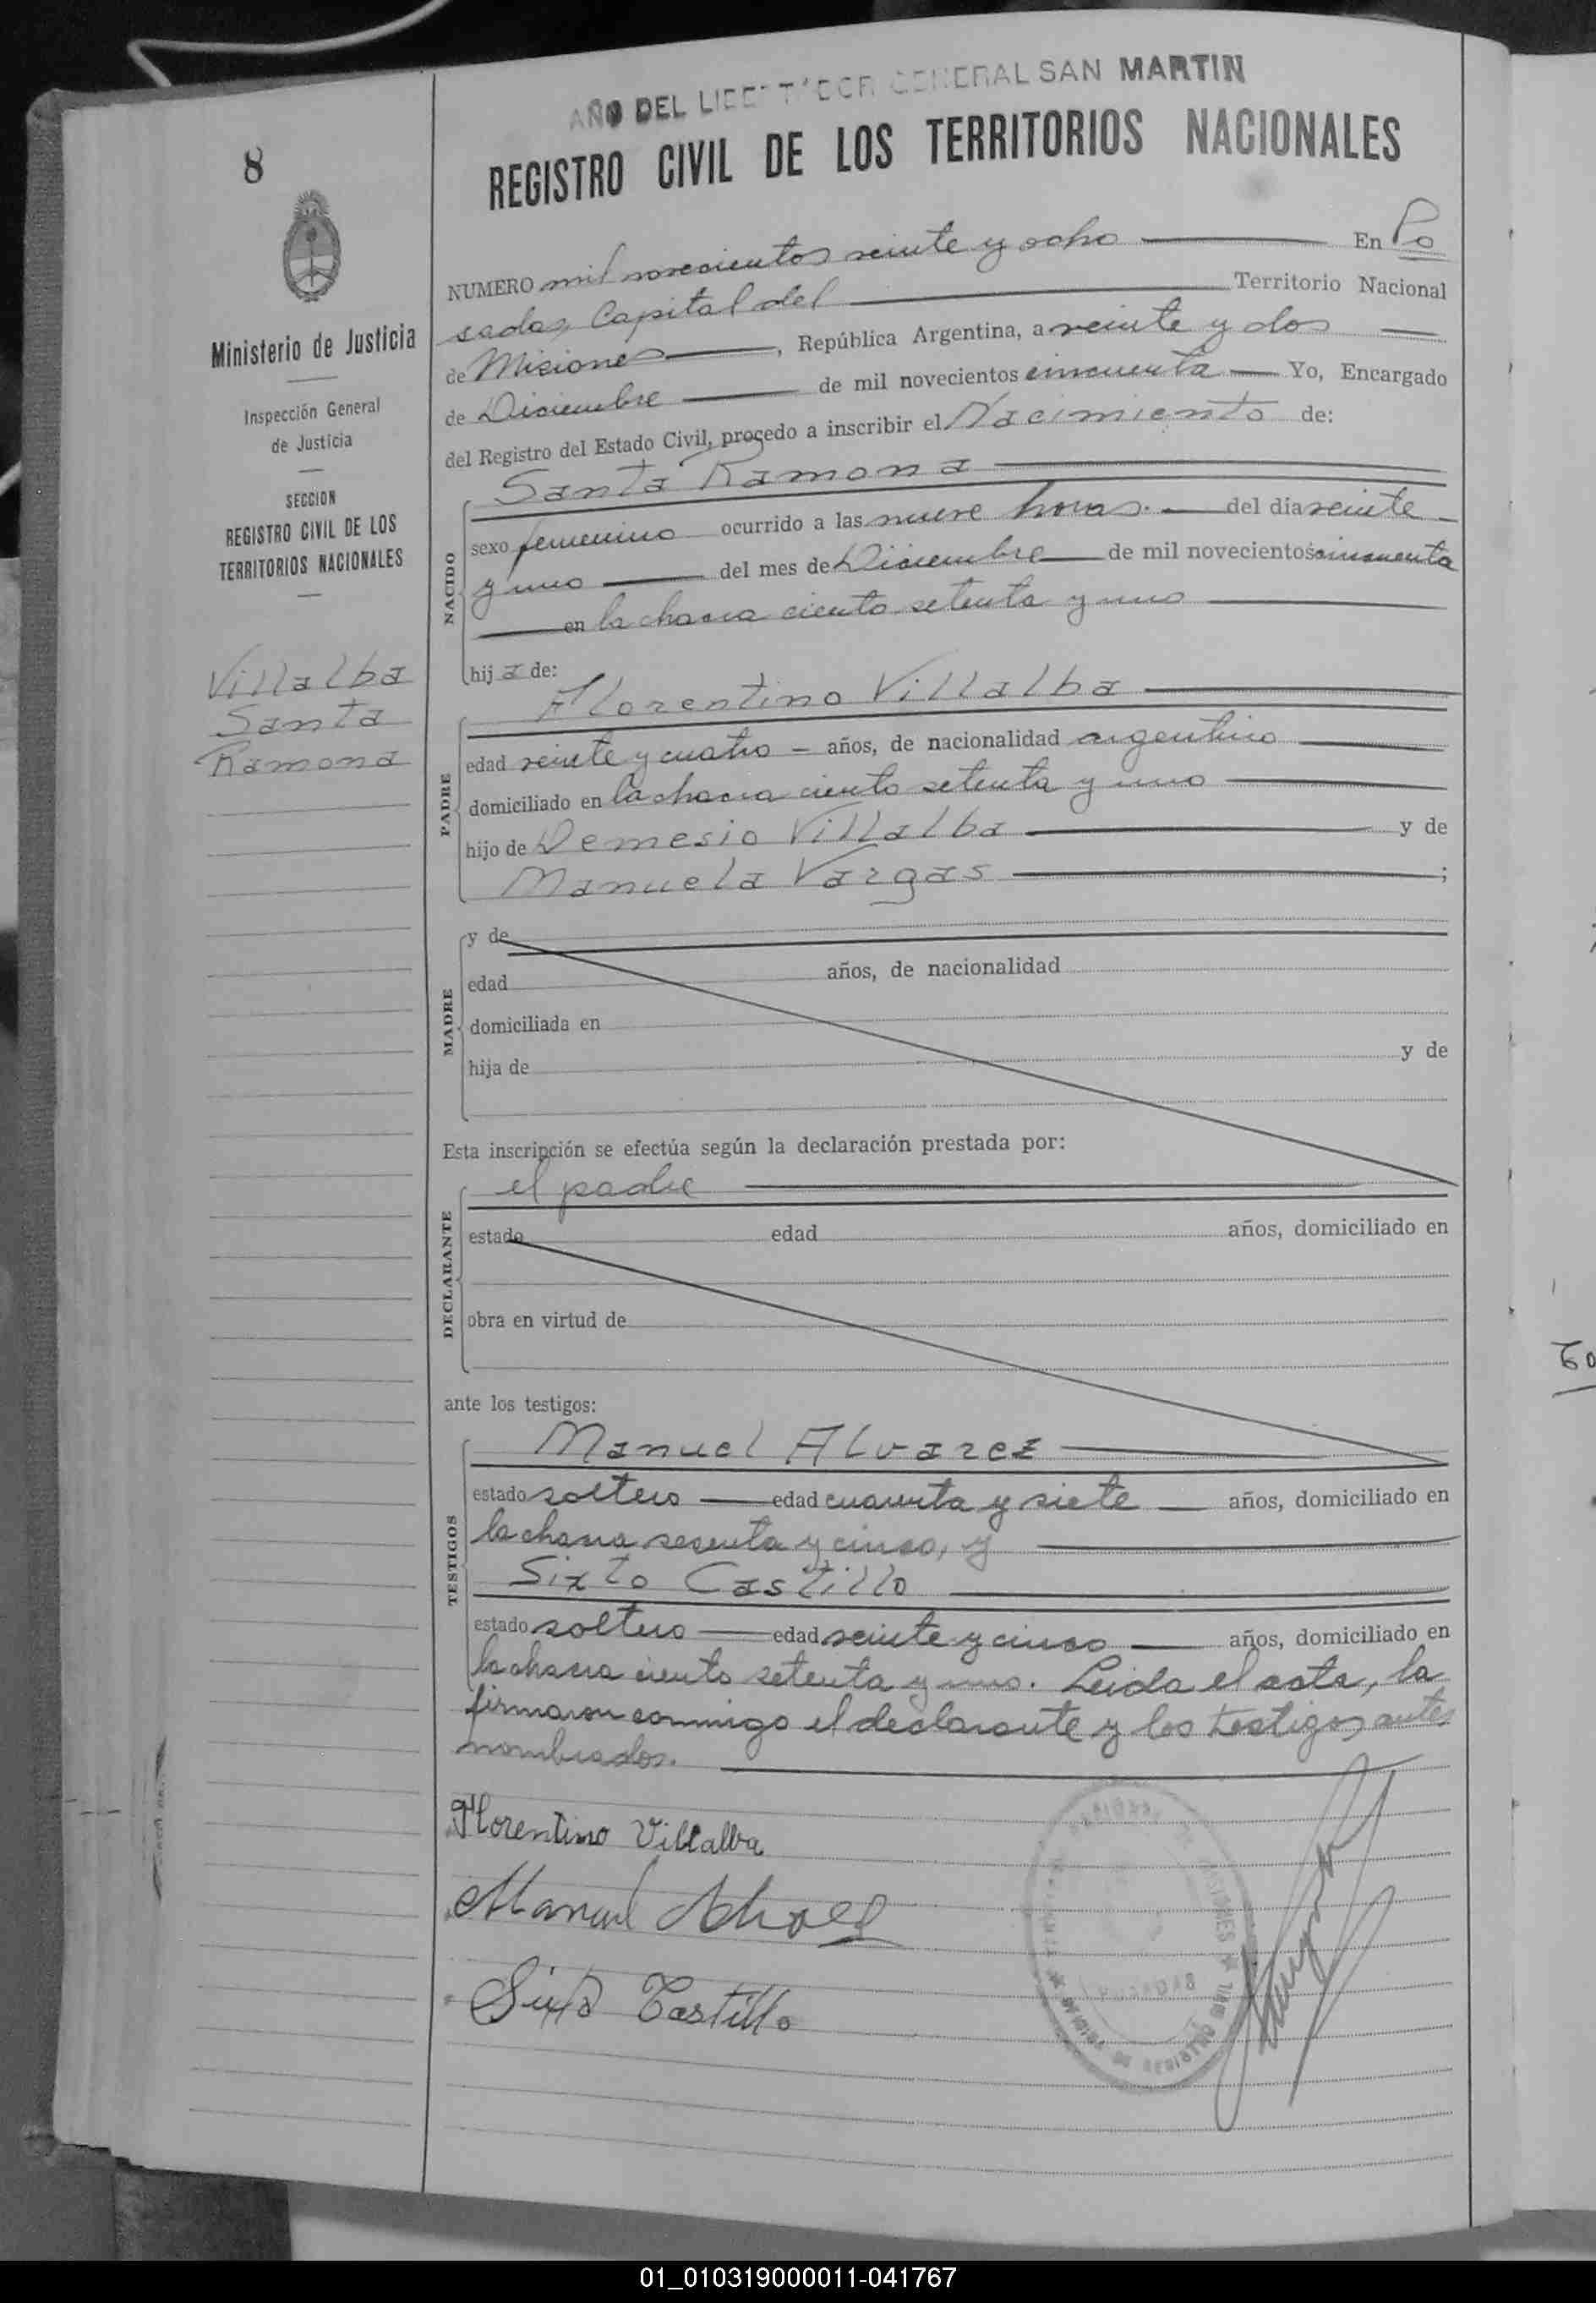 AÑO DEL LIBERTADOR GENERAL SAN MARTIN
REGISTRO CIVIL DE LOS TERRITORIOS NACIONALES
8
Ministerio de Justicia
Inspección General
de Justicia
SECCION
REGISTRO CIVIL DE LOS
TERRITORIOS NACIONALES
Villalba
Santa
Ramona
NUMERO mil novecientos veinte y ocho En Po
sadas, Capital del Territorio Nacional
de Misiones, República Argentina, a veinte y dos
de Diciembre de mil novecientos cincuenta Yo, Encargado
del Registro del Estado Civil, procedo a inscribir el Nacimiento de:
NACIDO
Santa Ramona
sexo femenino ocurrido a las nueve horas. del dia veinte
y uno del mes de Diciembre de mil novecientos cincuenta
en la chacra ciento setenta y uno
hija de:
PADRE
Florentino Villalba
edad veinte y cuatro años, de nacionalidad argentino
domiciliado en la chacra ciento setenta y uno
hijo de Demesio Villalba y de
Manuela Vargas ;
MADRE
y de
edad años, de nacionalidad
domiciliada en
hija de y de
Esta inscripción se efectúa según la declaración prestada por:
DECLARANTE
el padre
estado edad años, domiciliado en
obra en virtud de
ante los testigos:
TESTIGOS
Manuel Alvarez
estado soltero edad cuarenta y siete años, domiciliado en
la chacra sesenta y cinco, y
Sixto Castillo
estado soltero edad veinte y cinco años, domiciliado en
la chacra ciento setenta y uno. Leida el acta, la
firmaron conmigo el declarante y los testigos antes
nombrados.
Florentino Villalba
Manuel Alvarez
Sixto Castillo
01_010319000011-041767